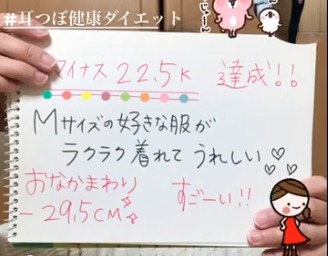 #耳つぼ健康ダイエット
じゃーん
マイナス22.5K 達成!!
Mサイズの好きな服が
ラクラク着れてうれしい♡♡
おなかまわり すごーい!!
-29.5CM